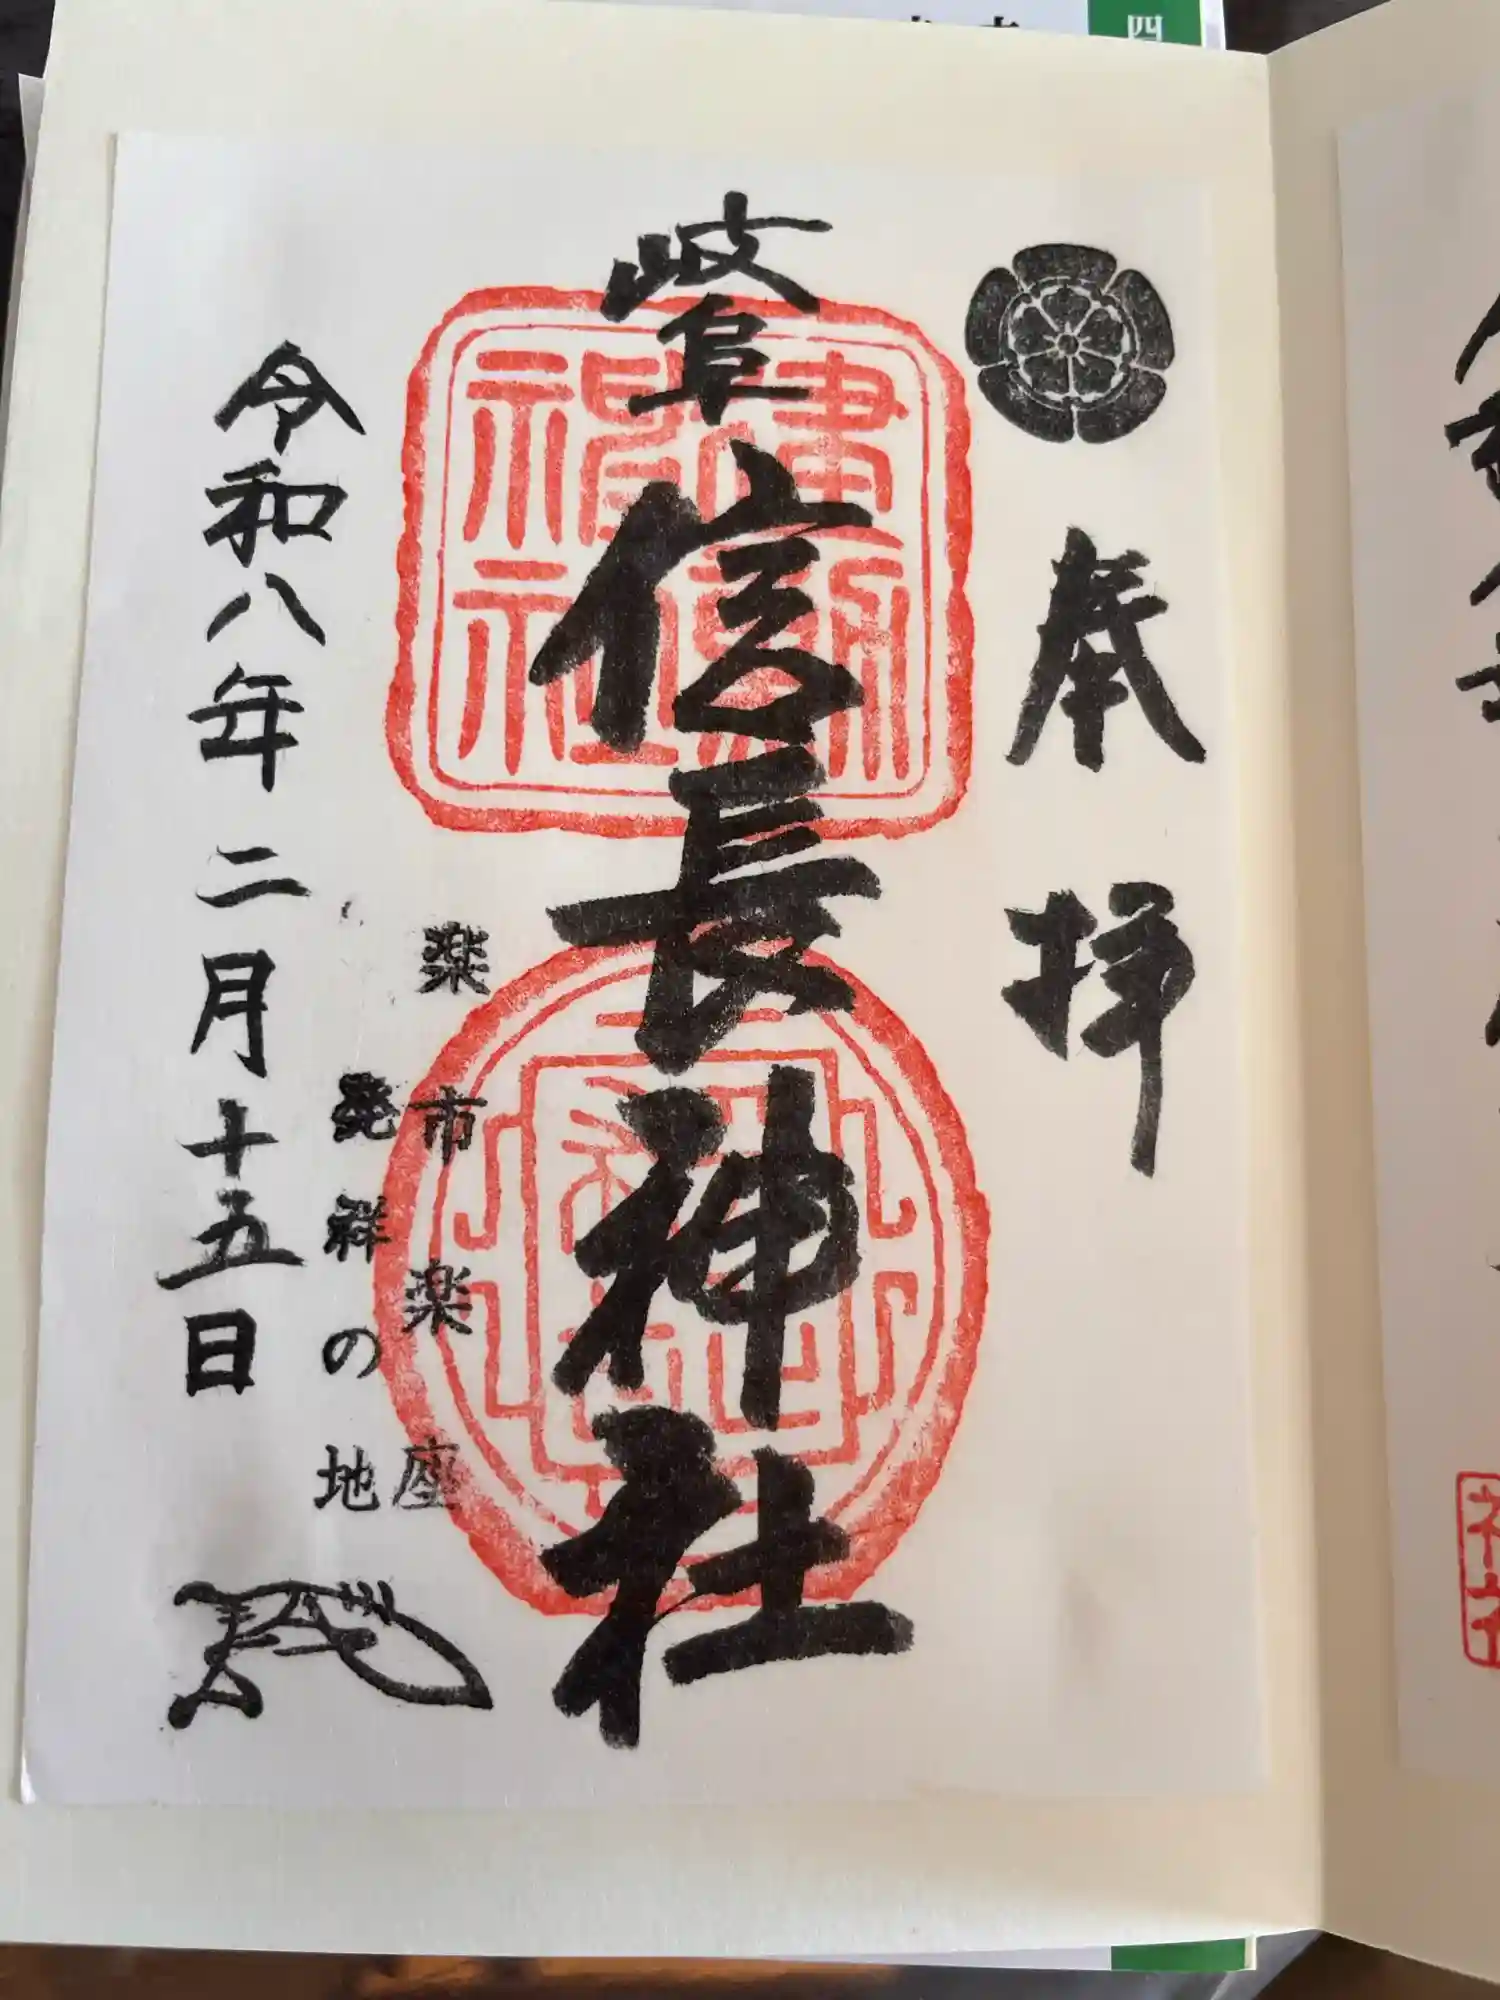 奉拝
岐阜信長神社
建勲神社
楽市楽座
発祥の地
令和八年二月十五日
四